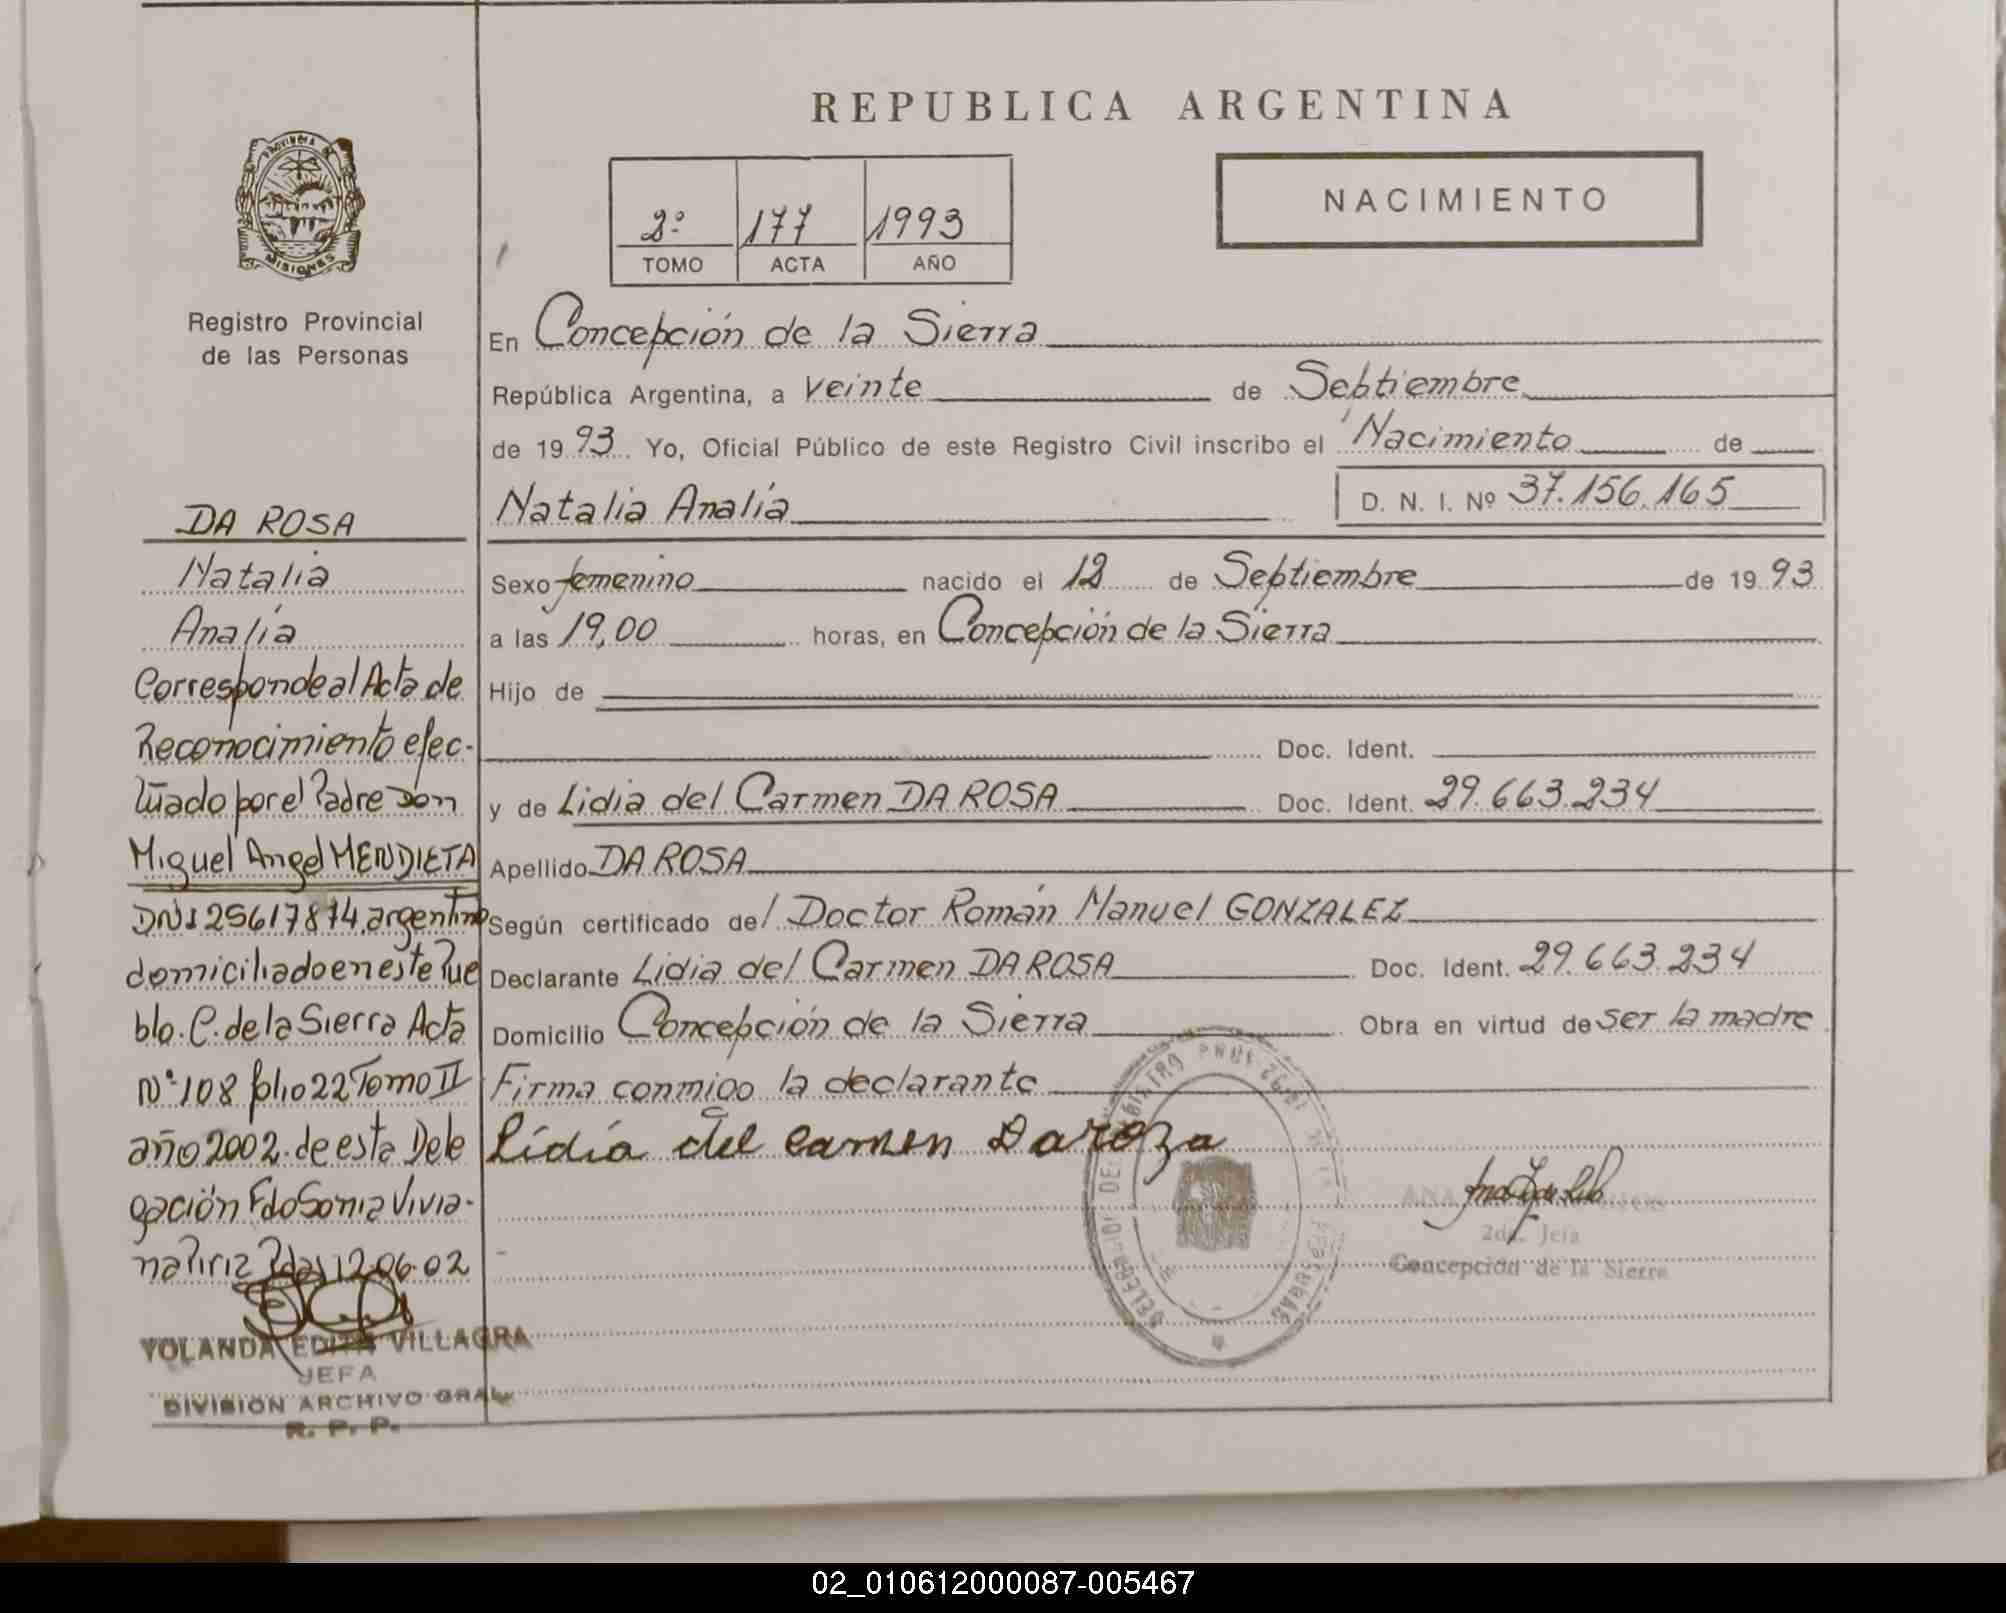 REPUBLICA ARGENTINA
PROVINCIA DE
MISIONES
Registro Provincial
de las Personas
2º 177 1993
TOMO ACTA AÑO
NACIMIENTO
En Concepción de la Sierra
República Argentina, a veinte de Septiembre
de 1993 Yo, Oficial Público de este Registro Civil inscribo el Nacimiento de
Natalia Analía D. N. I. Nº 37.156.165
Sexo femenino nacido el 12 de Septiembre de 1993
a las 19,00 horas, en Concepción de la Sierra
Hijo de
Doc. Ident.
y de Lidia del Carmen DA ROSA Doc. Ident. 29.663.234
Apellido DA ROSA
Según certificado del Doctor Román Manuel GONZALEZ
Declarante Lidia del Carmen DA ROSA Doc. Ident. 29.663.234
Domicilio Concepción de la Sierra Obra en virtud de ser la madre
Firma conmigo la declarante
Lidia del carmen Daroza
2da. Jefa
Concepción de la Sierra
DA ROSA
Natalia
Analía
Corresponde al Acta de
Reconocimiento efec-
tuado por el Padre Don
Miguel Angel MENDIETA
DNI 25617874, argentino
domiciliado en este Pue
blo. C. de la Sierra Acta
Nº 108 folio 22 Tomo II
año 2002. de esta Dele
gación Fdo Sonia Vivia-
na Piriz 12.06.02
YOLANDA EDITH VILLAGRA
JEFA
DIVISION ARCHIVO GRAL
R. P. P.
02_010612000087-005467